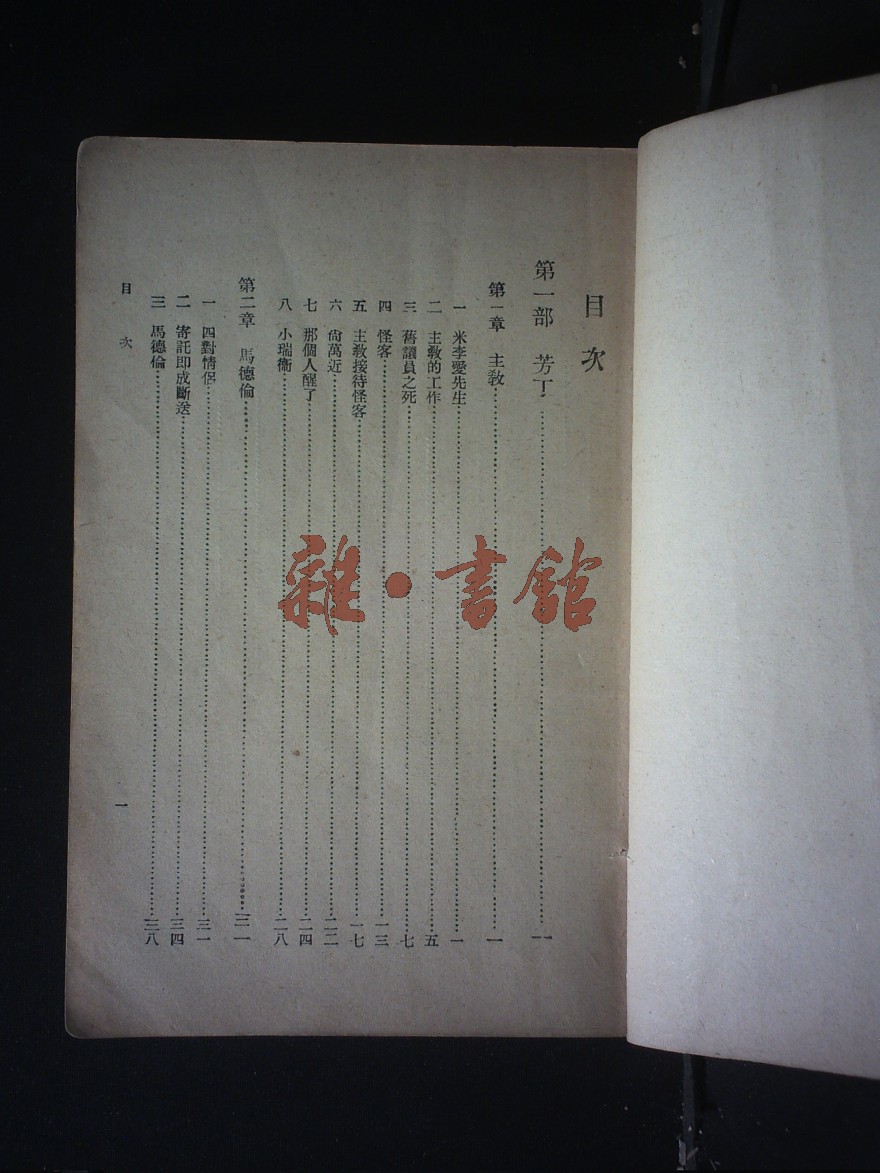 目次
第一部 芳丁……一
第一章 主教……一
一 米李愛先生……一
二 主教的工作……五
三 舊議員之死……七
四 怪客……一三
五 主教接待怪客……一七
六 尙萬近……二二
七 那個人醒了……二四
八 小瑞衞……二八
第二章 馬德倫……三一
一 四對情侶……三一
二 寄託即成斷送……三四
三 馬德倫……三八
目次 一
雜·書館